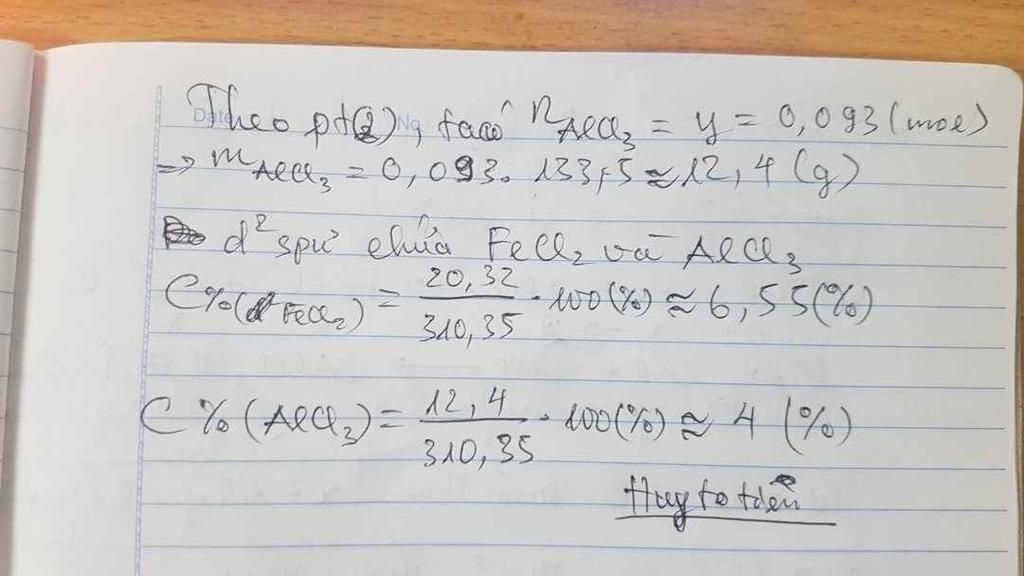 Theo pt(2), ta có n AlCl3 = y = 0,093 (mol)
=> m AlCl3 = 0,093. 133,5 ≈ 12,4 (g)
d² spứ chứa FeCl2 và AlCl3
C%(FeCl2) = 20,32/310,35 . 100(%) ≈ 6,55(%)
C%(AlCl3) = 12,4/310,35 . 100(%) ≈ 4 (%)